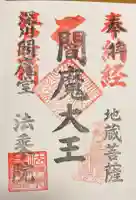 奉納経
地蔵菩薩
閻魔大王
深川閻魔堂
法乗院